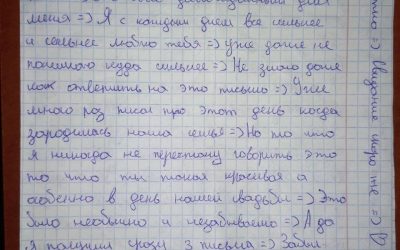 меня =) Я с каждым днем все сильнее
и сильнее люблю тебя =) уже даже не
понимаю куда сильнее =) Не знаю даже
как ответить на это письмо =) Уже
много раз писал про этот день когда
зародилась наша семья =) Но то что
я никогда не перестану говорить это
то что ты такая красивая а
особенно в день нашей свадьбы =) Это
было необычно и незабываемо =) А да
я получил сразу 3 письма =)